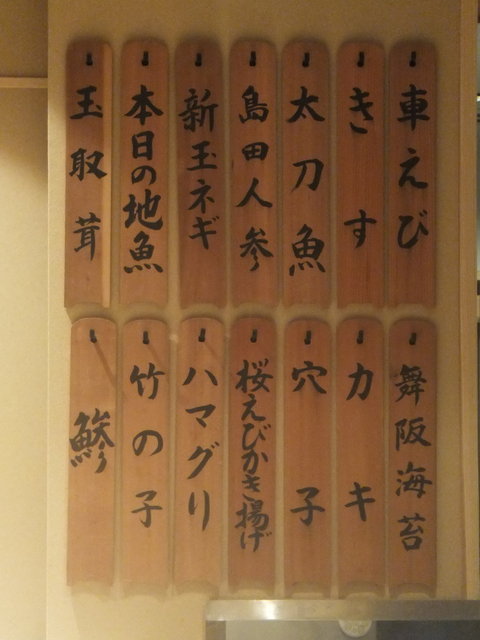 車えび
きす
太刀魚
島田人参
新玉ネギ
本日の地魚
玉取茸
舞阪海苔
カキ
穴子
桜えびかき揚げ
ハマグリ
竹の子
鯵